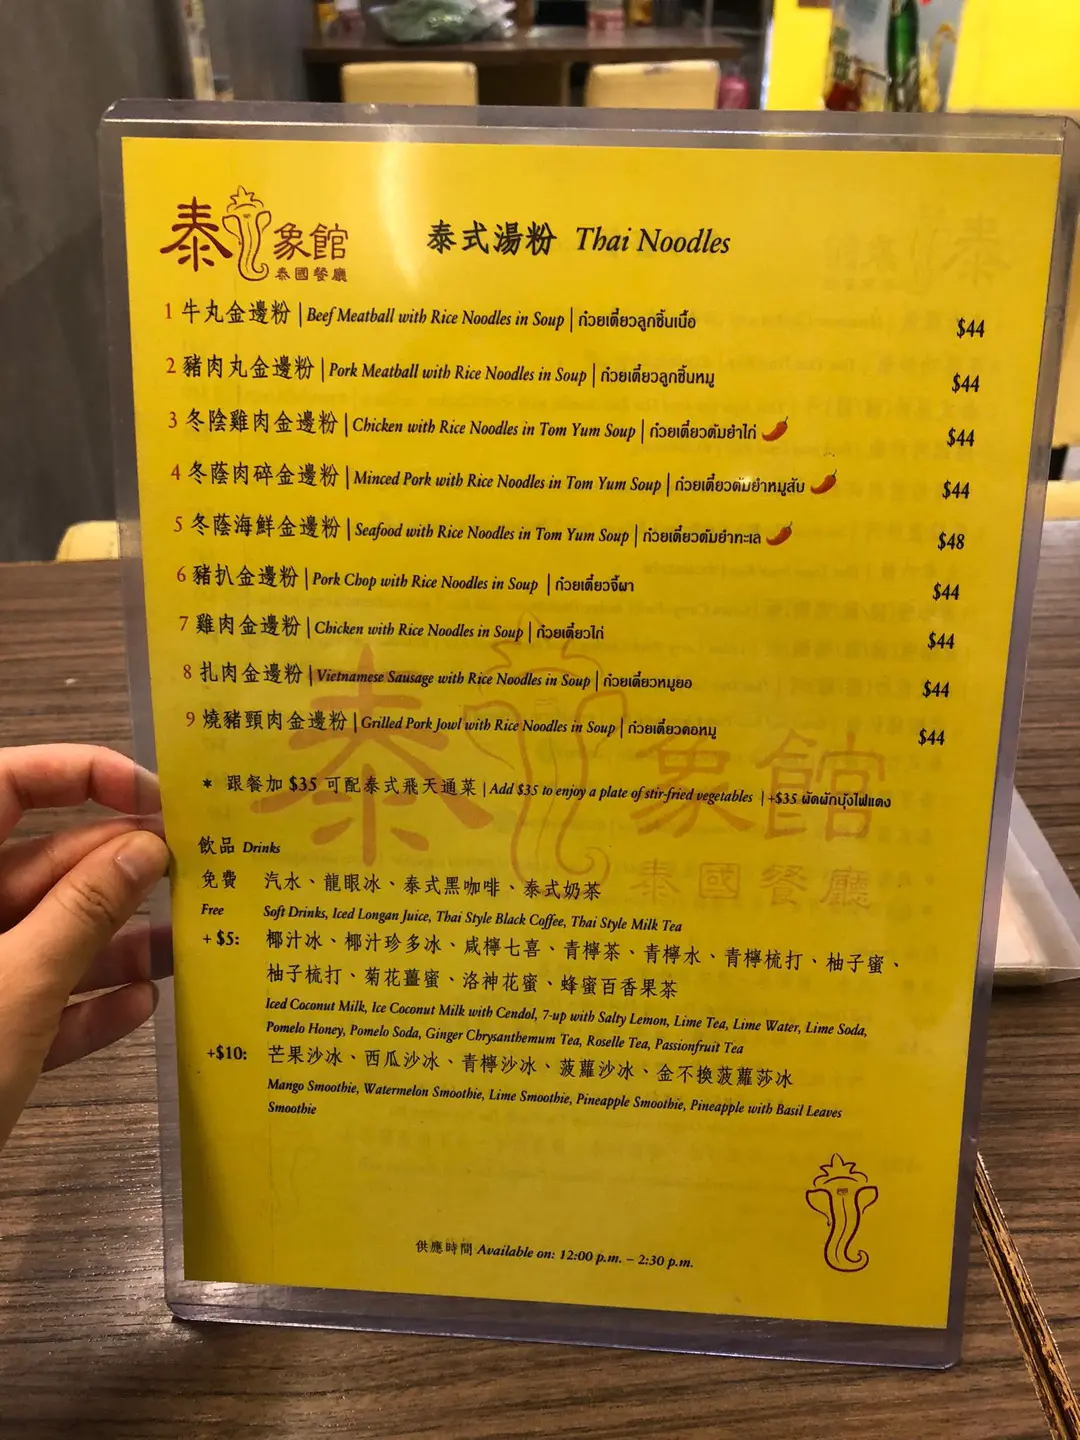 泰象館
泰國餐廳
泰式湯粉 Thai Noodles
1 牛丸金邊粉 | Beef Meatball with Rice Noodles in Soup | ก๋วยเตี๋ยวลูกชิ้นเนื้อ $44
2 豬肉丸金邊粉 | Pork Meatball with Rice Noodles in Soup | ก๋วยเตี๋ยวลูกชิ้นหมู $44
3 冬陰雞肉金邊粉 | Chicken with Rice Noodles in Tom Yum Soup | ก๋วยเตี๋ยวต้มยำไก่ $44
4 冬蔭肉碎金邊粉 | Minced Pork with Rice Noodles in Tom Yum Soup | ก๋วยเตี๋ยวต้มยำหมูสับ $44
5 冬蔭海鮮金邊粉 | Seafood with Rice Noodles in Tom Yum Soup | ก๋วยเตี๋ยวต้มยำทะเล $48
6 豬扒金邊粉 | Pork Chop with Rice Noodles in Soup | ก๋วยเตี๋ยวจี้ผา $44
7 雞肉金邊粉 | Chicken with Rice Noodles in Soup | ก๋วยเตี๋ยวไก่ $44
8 扎肉金邊粉 | Vietnamese Sausage with Rice Noodles in Soup | ก๋วยเตี๋ยวหมูยอ $44
9 燒豬頸肉金邊粉 | Grilled Pork Jowl with Rice Noodles in Soup | ก๋วยเตี๋ยวคอหมู $44
* 跟餐加 $35 可配泰式飛天通菜 | Add $35 to enjoy a plate of stir-fried vegetables | +$35 ผัดผักบุ้งไฟแดง
泰象館
泰國餐廳
飲品 Drinks
免費 汽水、龍眼冰、泰式黑咖啡、泰式奶茶
Free Soft Drinks, Iced Longan Juice, Thai Style Black Coffee, Thai Style Milk Tea
+ $5: 椰汁冰、椰汁珍多冰、咸檸七喜、青檸茶、青檸水、青檸梳打、柚子蜜、
柚子梳打、菊花薑蜜、洛神花蜜、蜂蜜百香果茶
Iced Coconut Milk, Ice Coconut Milk with Cendol, 7-up with Salty Lemon, Lime Tea, Lime Water, Lime Soda,
Pomelo Honey, Pomelo Soda, Ginger Chrysanthemum Tea, Roselle Tea, Passionfruit Tea
+$10: 芒果沙冰、西瓜沙冰、青檸沙冰、菠蘿沙冰、金不換菠蘿莎冰
Mango Smoothie, Watermelon Smoothie, Lime Smoothie, Pineapple Smoothie, Pineapple with Basil Leaves
Smoothie
供應時間 Available on: 12:00 p.m. – 2:30 p.m.